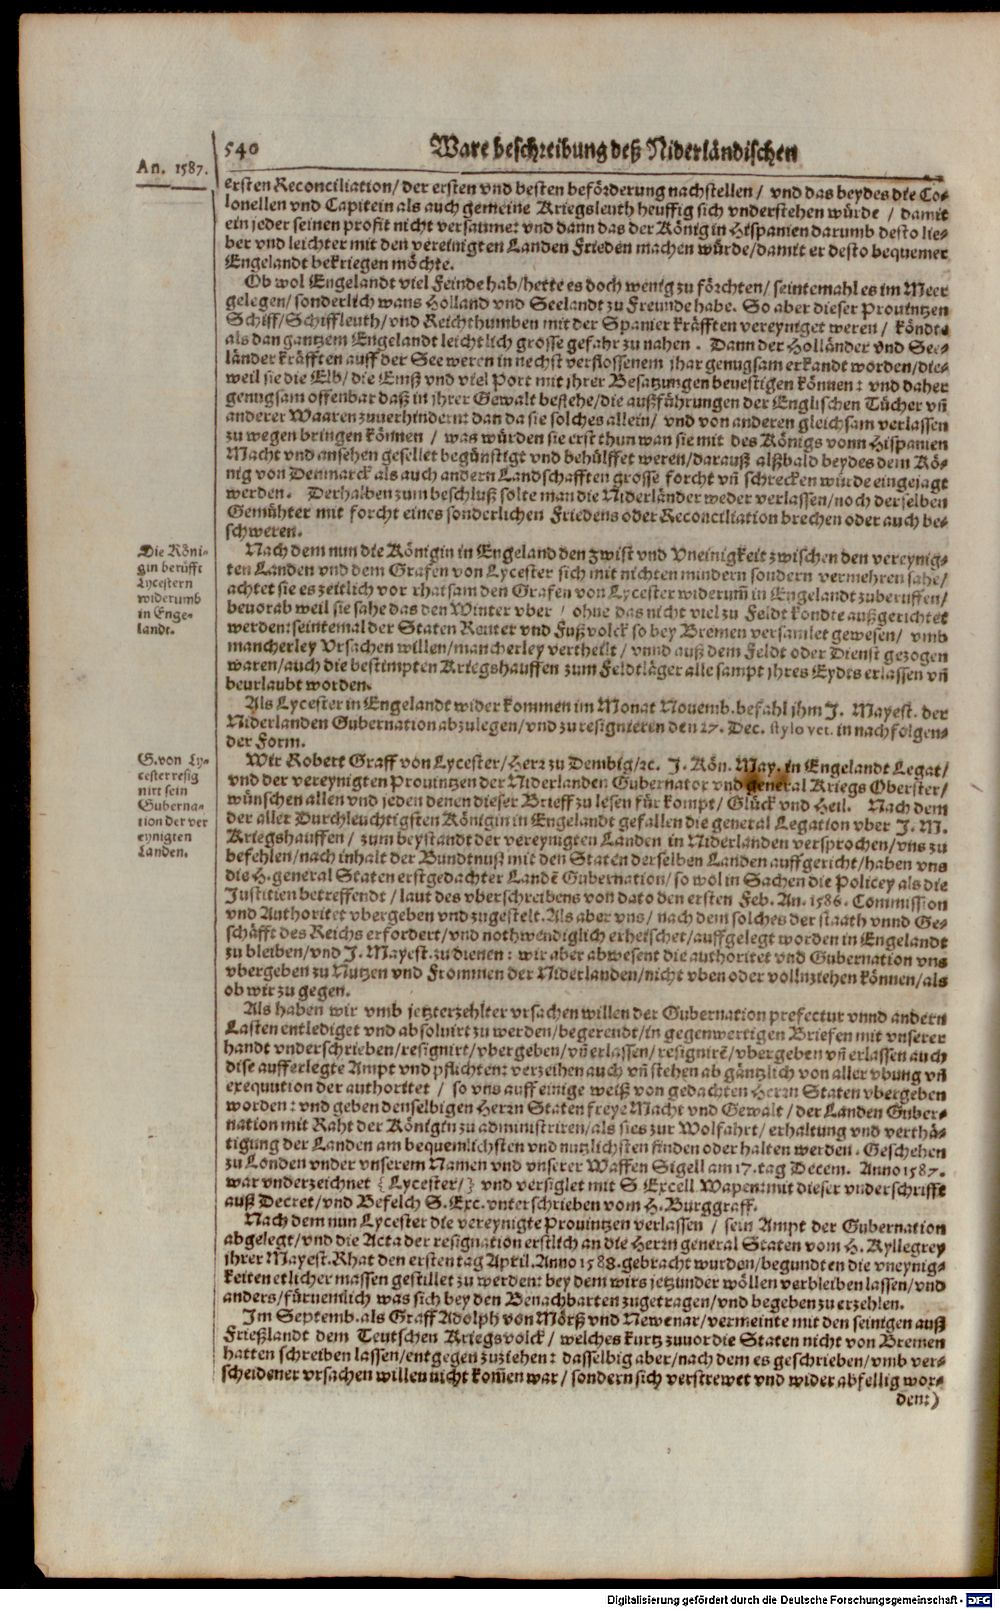 540 Ware beschreibung deß Niderländischen
An. 1587.
ersten Reconciliation/ der ersten vnd besten beförderung nachstellen / vnd das beydes die Co-
lonellen vnd Capitein als auch gemeine Kriegsleuth heuffig sich vnderstehen würde / damit
ein jeder seinen profit nicht versaume: vnd dann das der König in Hispanien darumb desto lie-
ber vnd leichter mit den vereinigten Landen Frieden machen würde/damit er desto bequemer
Engelandt bekriegen möchte.
Ob wol Engelandt viel Feinde hab/hette es doch wenig zu förchten/ seintemahl es im Meer
gelegen/sonderlich wans Holland vnd Seelandt zu Freunde habe. So aber dieser Prouintzen
Schiff/Schiffleuth/vnd Reichthumben mit der Spanier kräfften vereyniget weren / köndte
als dan gantzem Engelandt leichtlich grosse gefahr zu nahen. Dann der Holländer vnd See-
länder kräfften auff der See weren in nechst verflossenem jhar genugsam erkandt worden/die-
weil sie die Elb/die Emß vnd viel Port mit jhrer Besatzungen beuestigen können: vnd daher
genugsam offenbar daß in jhrer Gewalt bestehe/die außführungen der Englischen Tücher vñ
anderer Waaren zuuerhindern: dan da sie solches allein/ vnd von anderen gleichsam verlassen
zu wegen bringen können / was würden sie erst thun wan sie mit des Königs vonn Hispanien
Macht vnd ansehen gesellet begünstigt vnd behülffet weren/darauß alßbald beydes dem Kö-
nig von Denmarck als auch andern Landschafften grosse forcht vñ schrecken würde eingejagt
werden. Derhalben zum beschluß solte man die Niderländer weder verlassen/noch derselben
Gemühter mit forcht eines sonderlichen Friedens oder Reconciliation brechen oder auch be-
schweren.
Die Köni-
gin berüfft
Lycestern
widerumb
in Enge-
landt.
Nach dem nun die Königin in Engeland den zwist vnd vneinigkeit zwischen den vereynig-
ten Landen vnd dem Grafen von Lycester sich mit nichten mindern sondern vermehren sahe/
achtet sie es zeitlich vor rhatsam den Grafen von Lycester widerum̃ in Engelandt zuberuffen/
beuorab weil sie sahe das den Winter vber / ohne das nicht viel zu Feldt kondte außgerichtet
werden: seintemal der Staten Reuter vnd Fußvolck so bey Bremen versamlet gewesen/ vmb
mancherley Vrsachen willen/mancherley vertheilt / vnnd auß dem Feldt oder Dienst gezogen
waren/auch die bestimpten Kriegshauffen zum Feldtläger alle sampt jhres Eydts erlassen vñ
beurlaubt worden.
Als Lycester in Engelandt wider kommen im Monat Nouemb. befahl jhm J. Mayest. der
Niderlanden Gubernation abzulegen/vnd zu resignieren den 27. Dec. stylo vet. in nachfolgen-
der Form.
G. von Ly-
cester resig
nirt sein
Guberna-
tion der ver
eynigten
Landen.
Wir Robert Graff von Lycester/Herr zu Dembig/ꝛc. J. Kön. May. in Engelandt Legat/
vnd der vereynigten Prouintzen der Niderlanden Gubernator vnd general Kriegs Oberster/
wünschen allen vnd jeden denen dieser Brieff zu lesen für kompt/ Glück vnd Heil. Nach dem
der aller Durchleuchtigsten Königin in Engelandt gefallen die general Legation vber J. M.
Kriegshauffen / zum beystandt der vereynigten Landen in Niderlanden versprochen/vns zu
befehlen/nach inhalt der Bundtnuß mit den Staten derselben Landen auffgericht/haben vns
die H. general Staten erstgedachter Landẽ Gubernation/so wol in Sachen die Policey als die
Justitien betreffendt / laut des vberschreibens von dato den ersten Feb. An. 1586. Commission
vnd Authoritet vbergeben vnd zugestelt. Als aber vns/ nach dem solches der staath vnnd Ge-
schäfft des Reichs erfordert/vnd nothwendiglich erheischet/auffgelegt worden in Engelandt
zu bleiben/vnd J. Mayest. zu dienen: wir aber abwesent die authoritet vnd Gubernation vns
vbergeben zu Nutzen vnd Frommen der Niderlanden/nicht vben oder vollnziehen können/als
ob wir zu gegen.
Als haben wir vmb jetzterzehlter vrsachen willen der Gubernation prefectur vnnd andern
Lasten entlediget vnd absoluirt zu werden/begerendt/in gegenwertigen Briefen mit vnserer
handt vnderschrieben/resignirt/vbergeben/vñ erlassen/resignirẽ/vbergeben vñ erlassen auch
dise aufferlegte Ampt vnd pflichten: verzeihen auch vñ stehen ab gäntzlich von aller vbung vñ
exequution der authoritet / so vns auff einige weiß von gedachten Herrn Staten vbergeben
worden: vnd geben denselbigen Herrn Staten freye Macht vnd Gewalt / der Landen Guber-
nation mit Raht der Königin zu administriren/als sies zur Wolfahrt/ erhaltung vnd verthä-
tigung der Landen am bequemlichsten vnd nutzlichsten finden oder halten werden. Geschehen
zu Londen vnder vnserem Namen vnd vnserer Waffen Sigell am 17. tag Decem. Anno 1587.
war vnderzeichnet {Lycester/} vnd versiglet mit S Excell Wapen: mit dieser vnderschrifft
auß Decret/vnd Befelch S. Exc. vnterschrieben vom H. Burggraff.
Nach dem nun Lycester die vereynigte Prouintzen verlassen / sein Ampt der Gubernation
abgelegt/vnd die Acta der resignation erstlich an die Herrn general Staten vom H. Kyllegrey
jhrer Mayest. Rhat den ersten tag April. Anno 1588. gebracht wurden/begundten die vneynig-
keiten etlicher massen gestillet zu werden: bey dem wirs jetzunder wöllen verbleiben lassen/vnd
anders/fürnemlich was sich bey den Benachbarten zugetragen/vnd begeben zu erzehlen.
Im Septemb. als Graff Adolph von Mörß vnd Newenar/vermeinte mit den seinigen auß
Frießlandt dem Teutschen Kriegsvolck / welches kurtz zuuor die Staten nicht von Bremen
hatten schreiben lassen/entgegen zuziehen: dasselbig aber/nach dem es geschrieben/vmb ver-
scheidener vrsachen willen nicht kom̃en war / sondern sich verstrewet vnd wider abfellig wor-
den:)
Digitalisierung gefördert durch die Deutsche Forschungsgemeinschaft - DFG